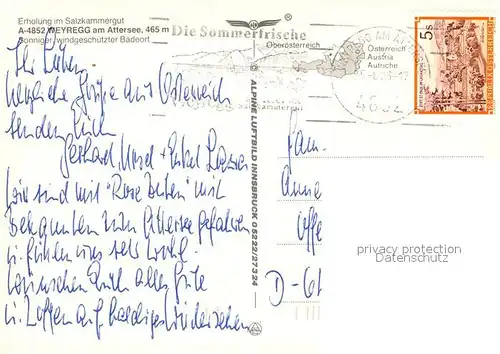 Erholung im Salzkammergut
A-4852 WEYREGG am Attersee, 465 m
Sonniger, windgeschützter Badeort
Die Sommerfrische
Oberösterreich
Österreich
Austria
Autriche
4852
5s
ALPINE LUFTBILD INNSBRUCK 05222/27324
Ihr Lieben
herzliche Grüße aus Österreich
senden Euch
Gerhard, Ursel + Enkel
Wir sind mit "Rose Beuten" mit
Bekannten zum Attersee gefahren
u. fühlen uns sehr wohl.
Wir wünschen Euch alles Gute
u. hoffen auf baldiges Wiedersehen
Fam.
Anne
Offe
D-61
privacy protection
Datenschutz